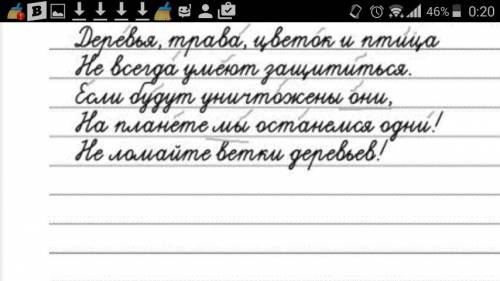 46% 0:20
Деревья, трава, цветок и птица
Не всегда умеют защититься.
Если будут уничтожены они,
На планете мы останемся одни!
Не ломайте ветки деревьев!